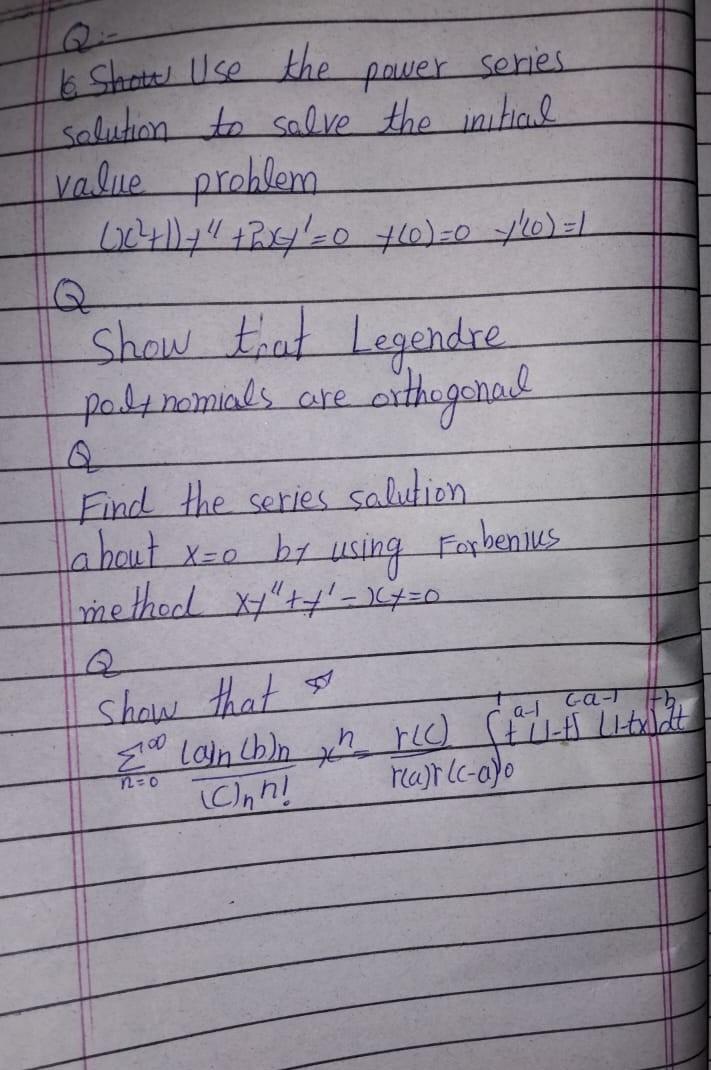 Q:-
Use the power series
solution to solve the initial
value problem
(x²+1)y'' + 2xy' = 0 y(0)=0 y'(0)=1
Q
Show that Legendre
polynomials are orthogonal
Q
Find the series solution
about x=0 by using Forbenius
method xy''+y'-xy=0
Q
Show that
∑_{n=0}^{∞} (a)n (b)n / (c)n n! x^n = Γ(c) / Γ(a)Γ(c-a) ∫_0^1 t^{a-1} (1-t)^{c-a-1} (1-tx)^{-b} dt